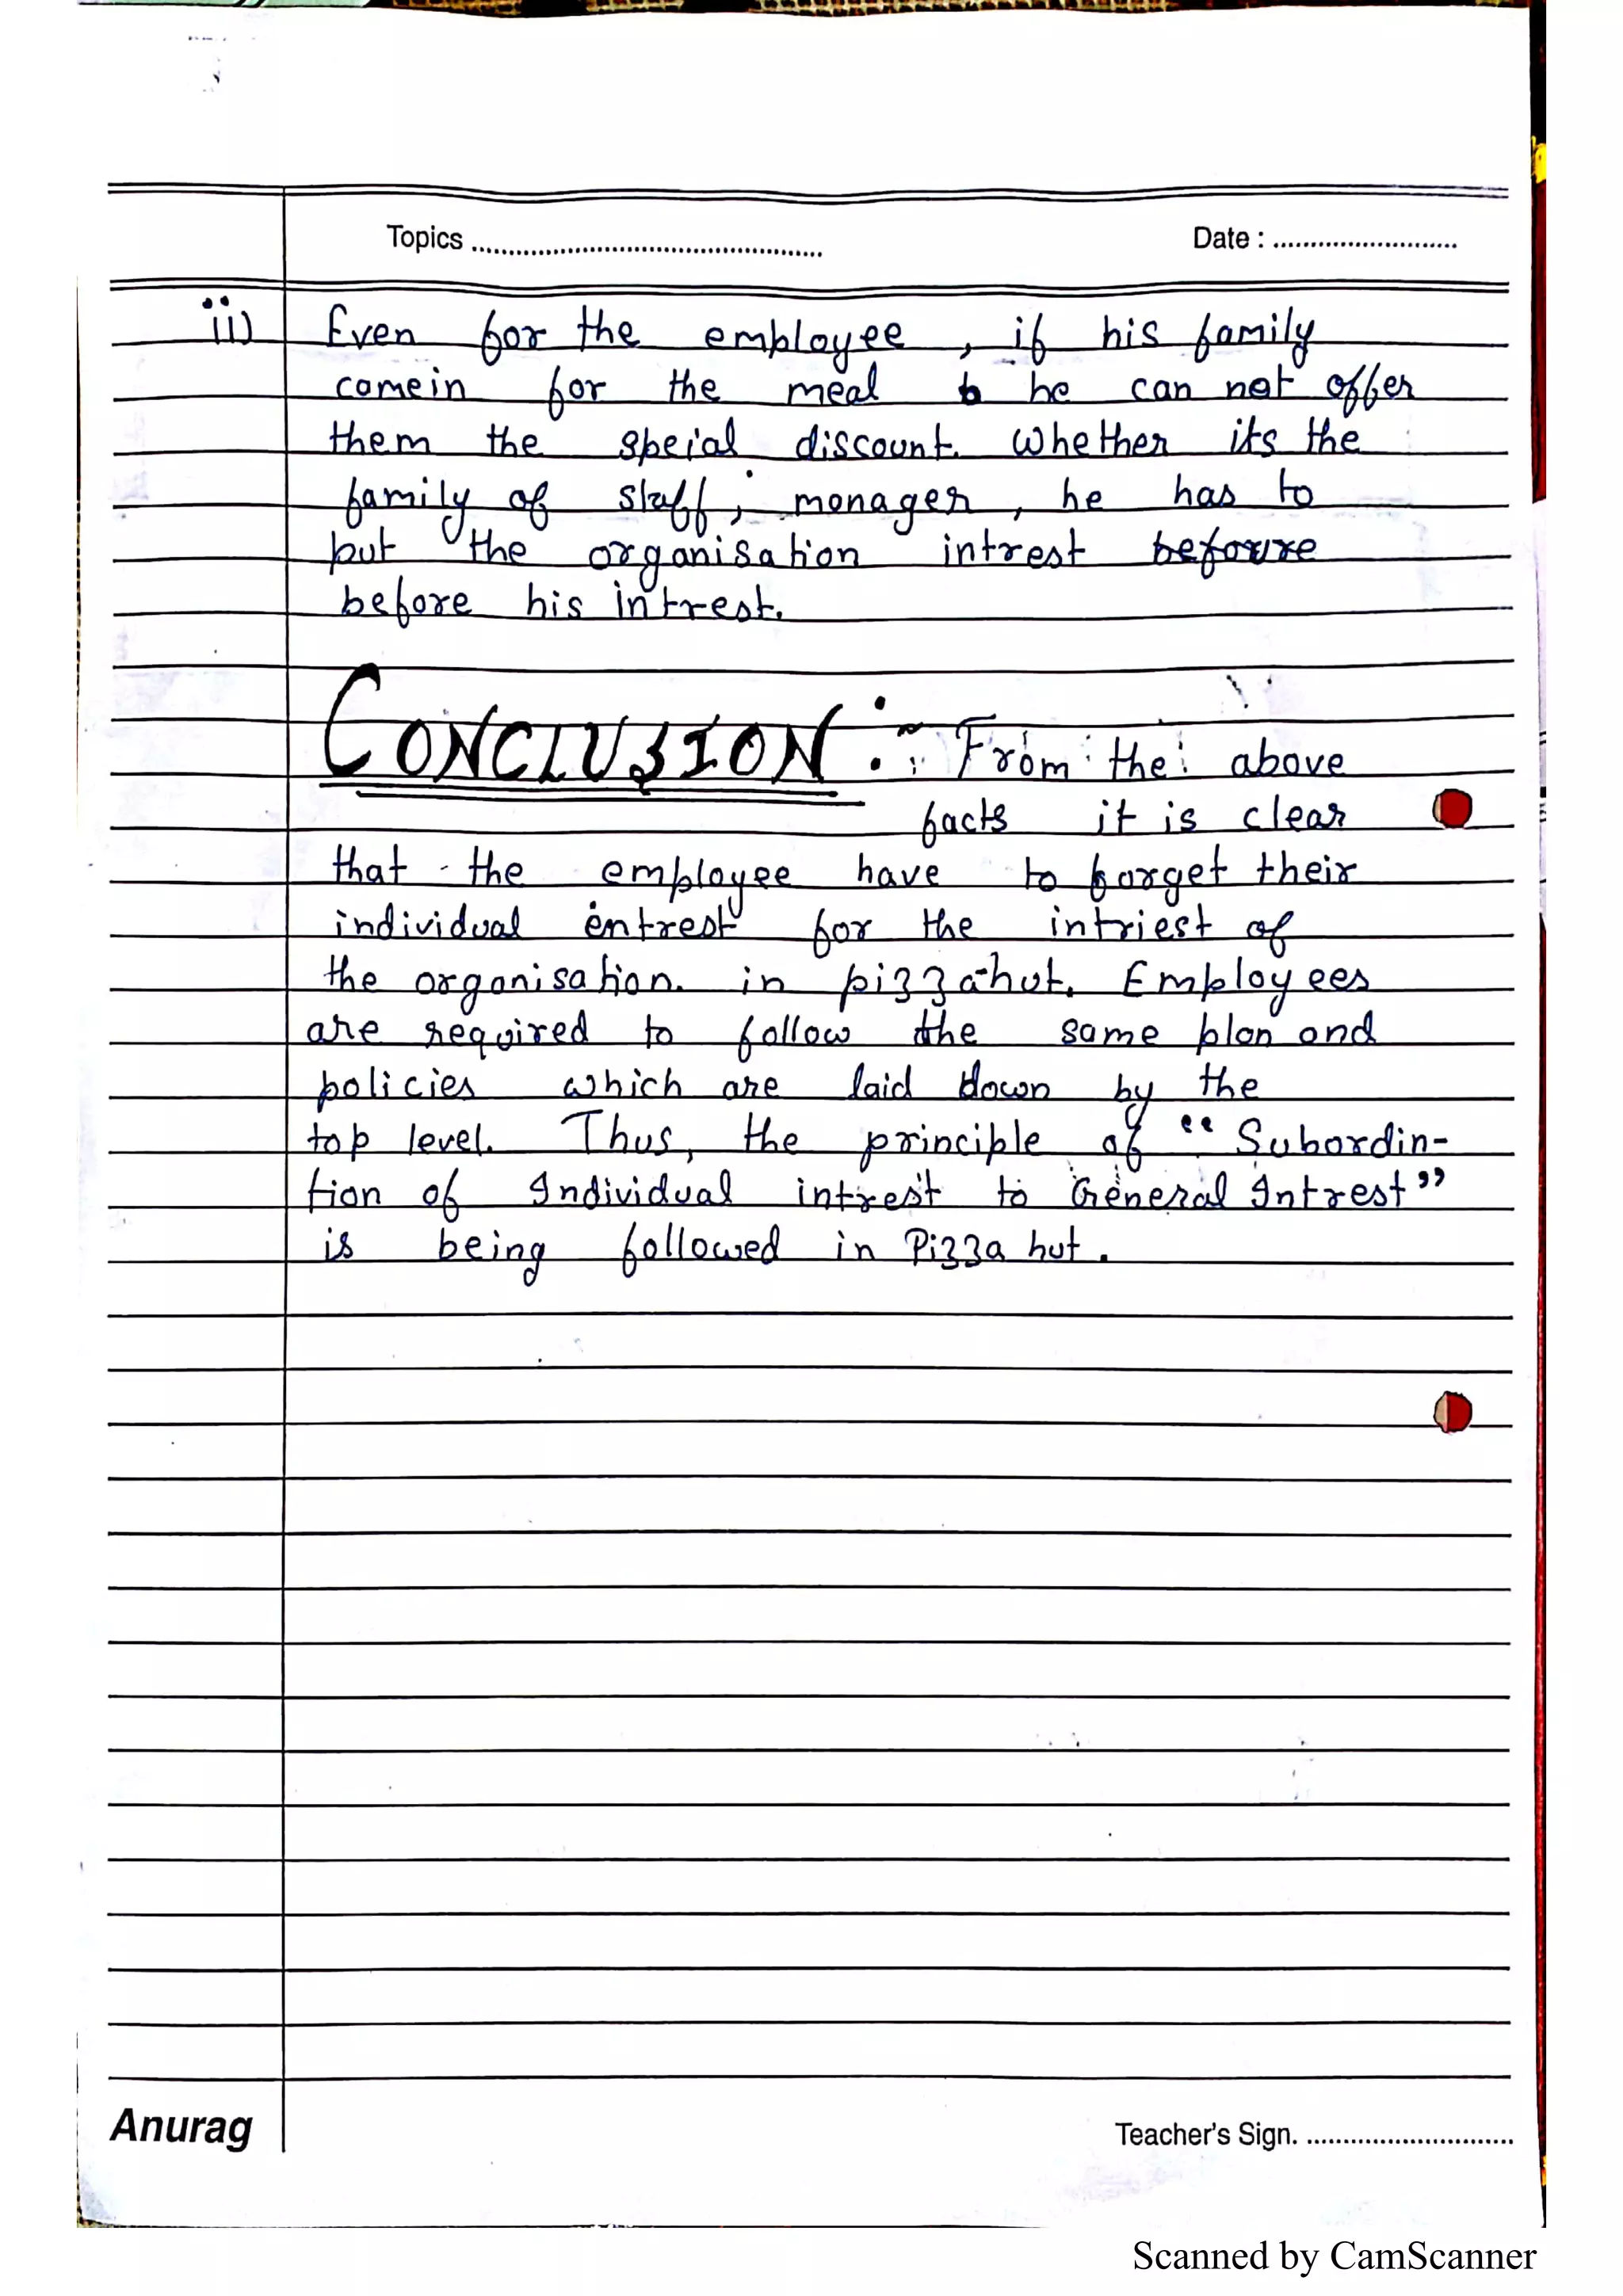 Topics ................................................ Date : .........................
ii) Even for the employee , if his family
comein for the meal he can not offer
them the speial discount. Whether its the
family of staff, manager , he has to
put the organisation intrest before
before his intrest.
CONCLUSION :~ From the above
facts it is clear
that the employee have to forget their
individual entrest for the intriest of
the organisation. in pizza-hut. Employees
are required to follow the same plan and
policies which are laid down by the
top level. Thus, the principle of "Subordin-
tion of Individual intrest to General Intrest"
is being followed in Pizza hut.
Anurag Teacher's Sign. .............................
Scanned by CamScanner